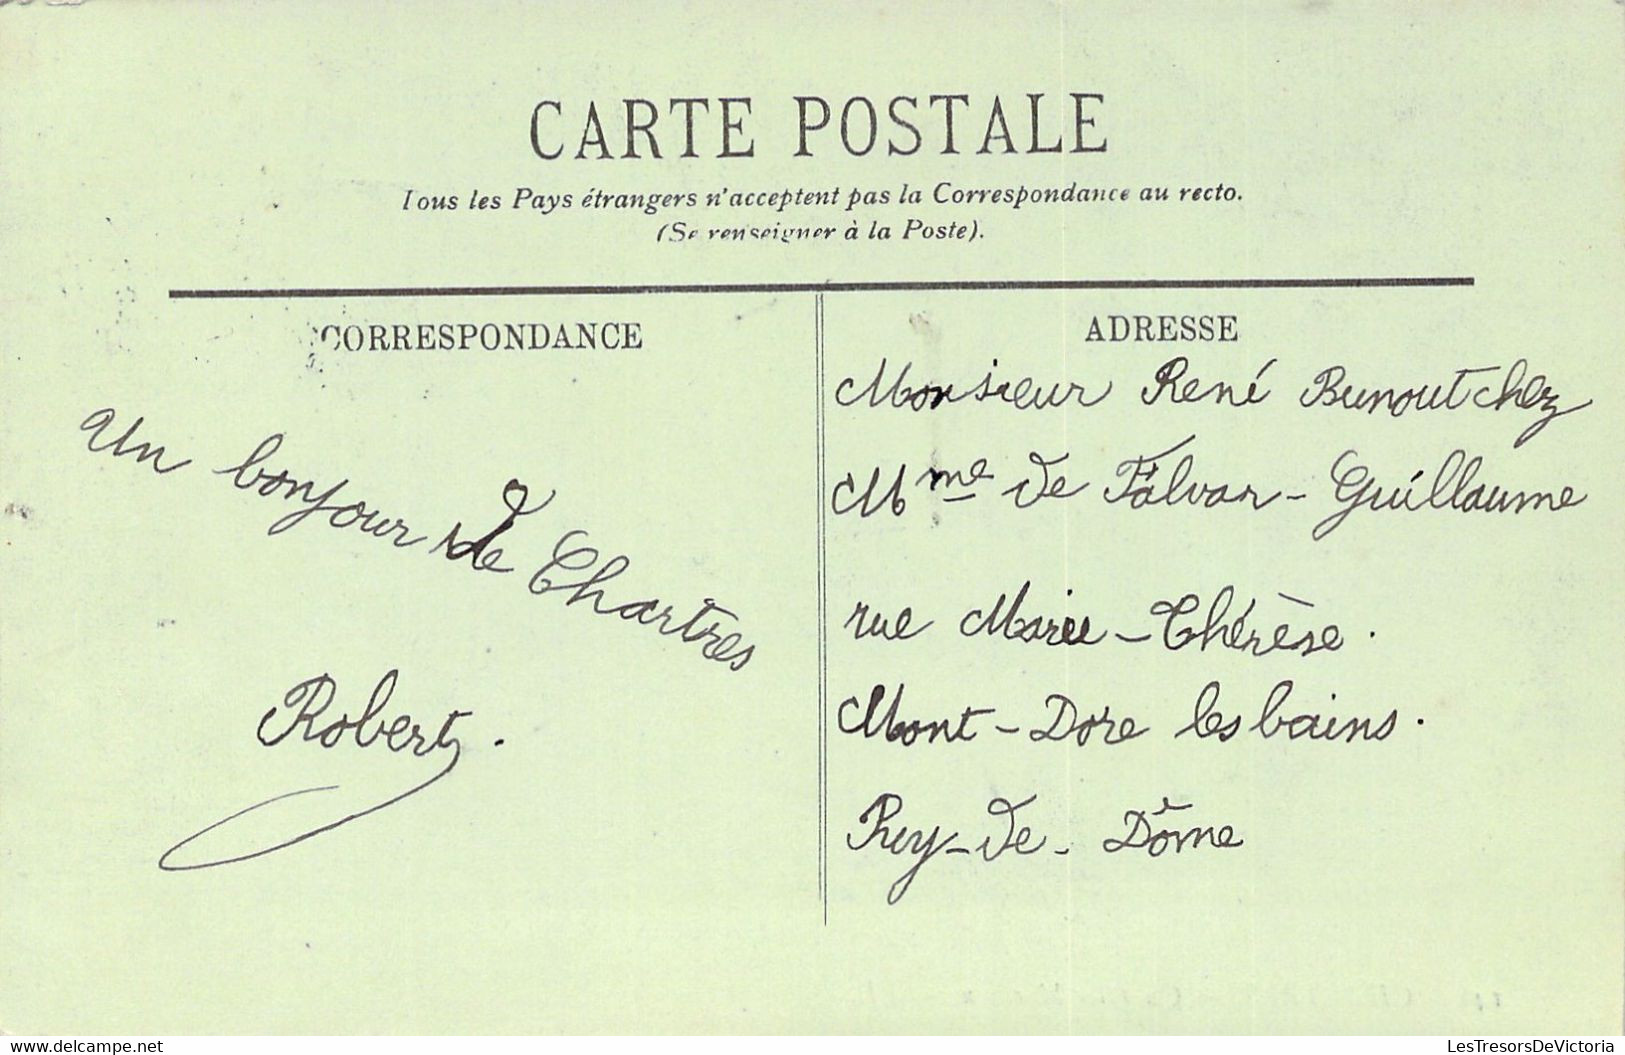 CARTE POSTALE
Tous les Pays étrangers n'acceptent pas la Correspondance au recto.
(Se renseigner à la Poste).
CORRESPONDANCE
Un bonjour de Chartres
Robert.
ADRESSE
Monsieur René Bunout chez
Mme de Falvar - Guillaume
rue Marie - Thérèse.
Mont - Dore les bains.
Puy - de - Dôme
www.delcampe.net
LesTresorsDeVictoria